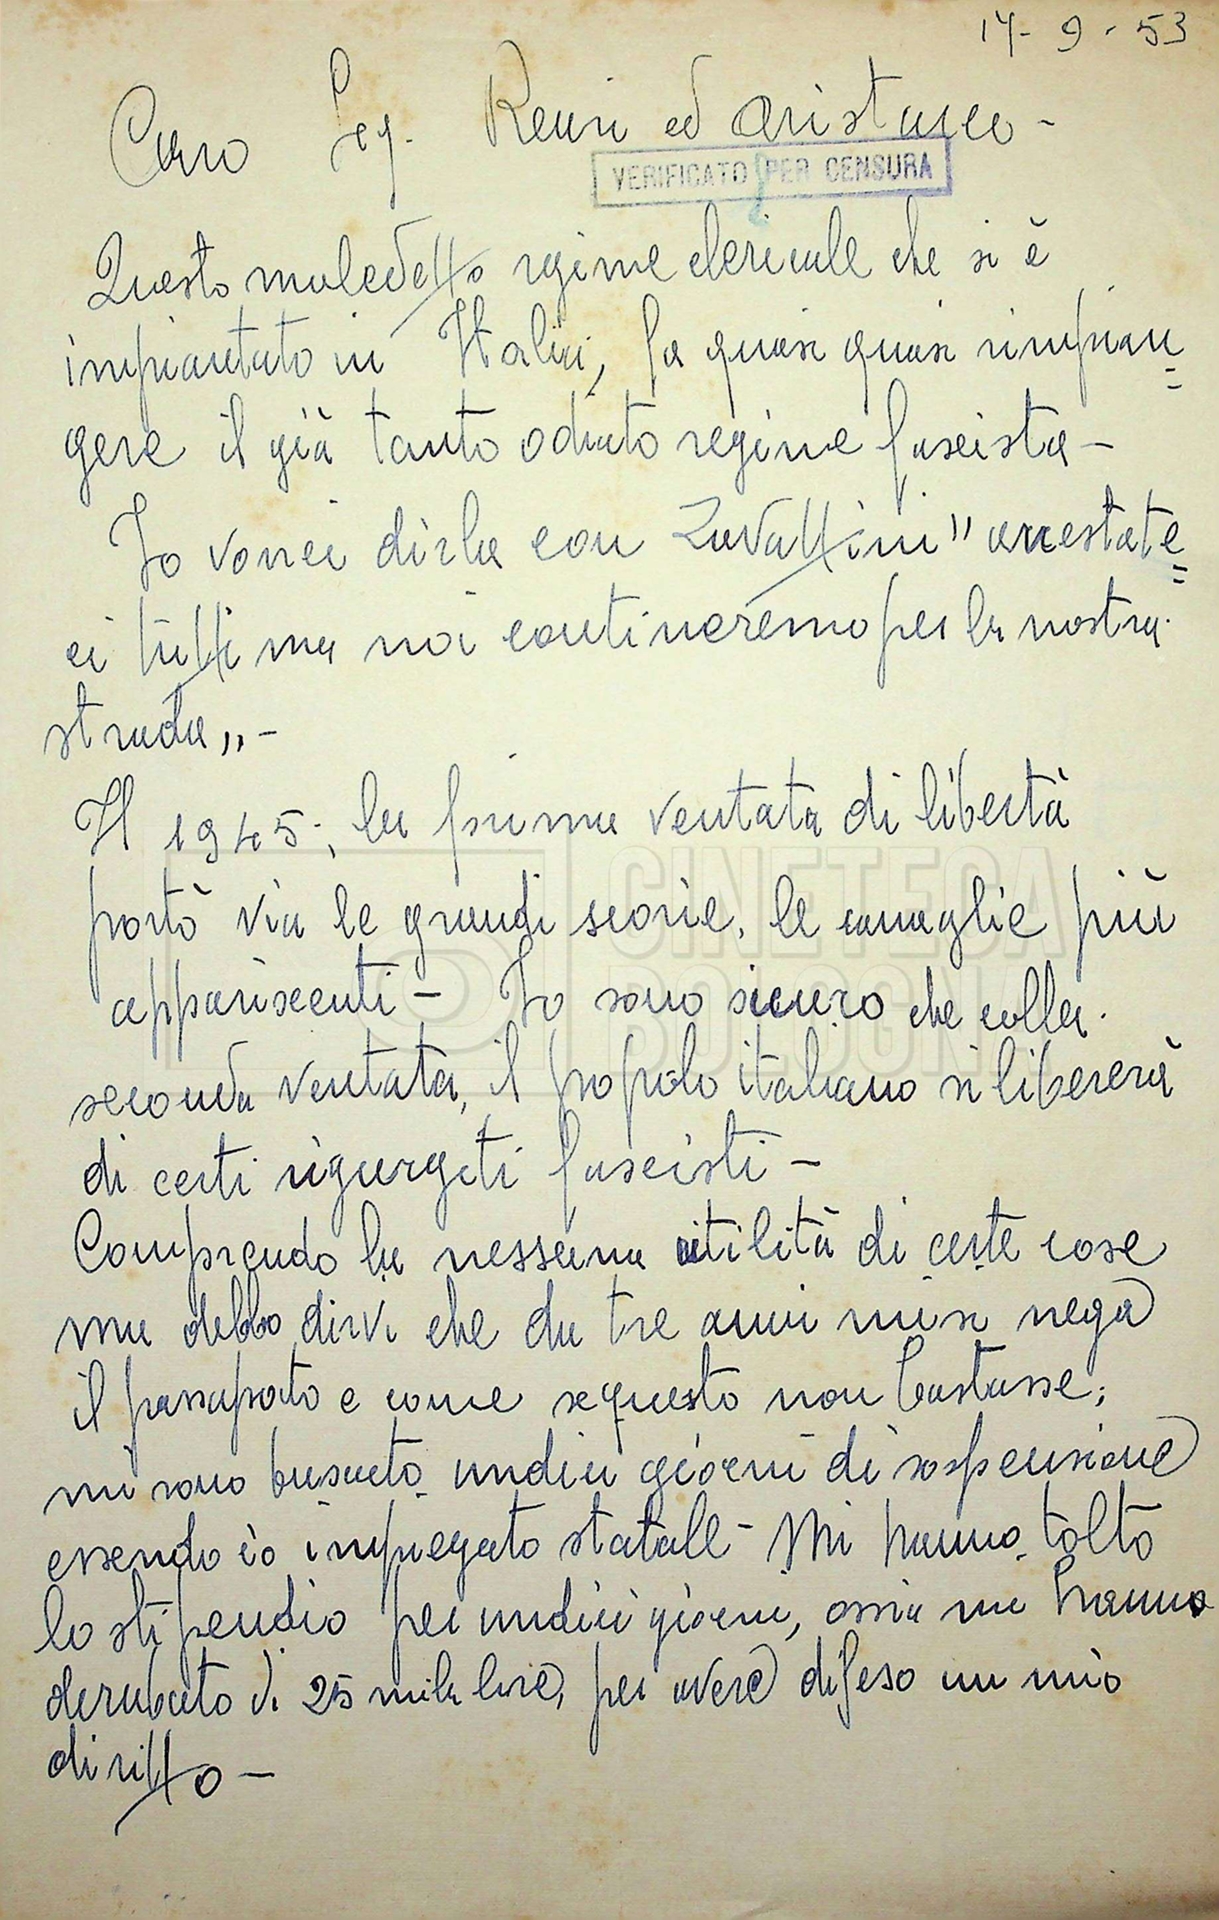 17-9-53
Caro Sig. Renzi ed Aristarco -
VERIFICATO PER CENSURA
Questo maledetto regime clericale che si è
impiantato in Italia, fa quasi quasi rimpian=
gere il già tanto odiato regime fascista -
Io vorrei dirla con Zavattini " arrestate=
ci tutti ma noi contineremo per la nostra
strada„ -
Il 1945; la prima ventata di libertà
portò via le grandi scorie, le canaglie più
appariscenti - Io sono sicuro che colla
CINETECA
BOLOGNA
seconda ventata, il popolo italiano si libererà
di certi rigurgiti fascisti -
Comprendo la nessuna utilità di certe cose
ma debbo dirvi che da tre anni mi si nega
il passaporto e come se questo non bastasse;
mi sono buscato undici giorni di sospensione
essendo io impiegato statale - Mi hanno tolto
lo stipendio per undici giorni, ossia mi hanno
derubato di 25 mila lire, per avere difeso un mio
diritto -